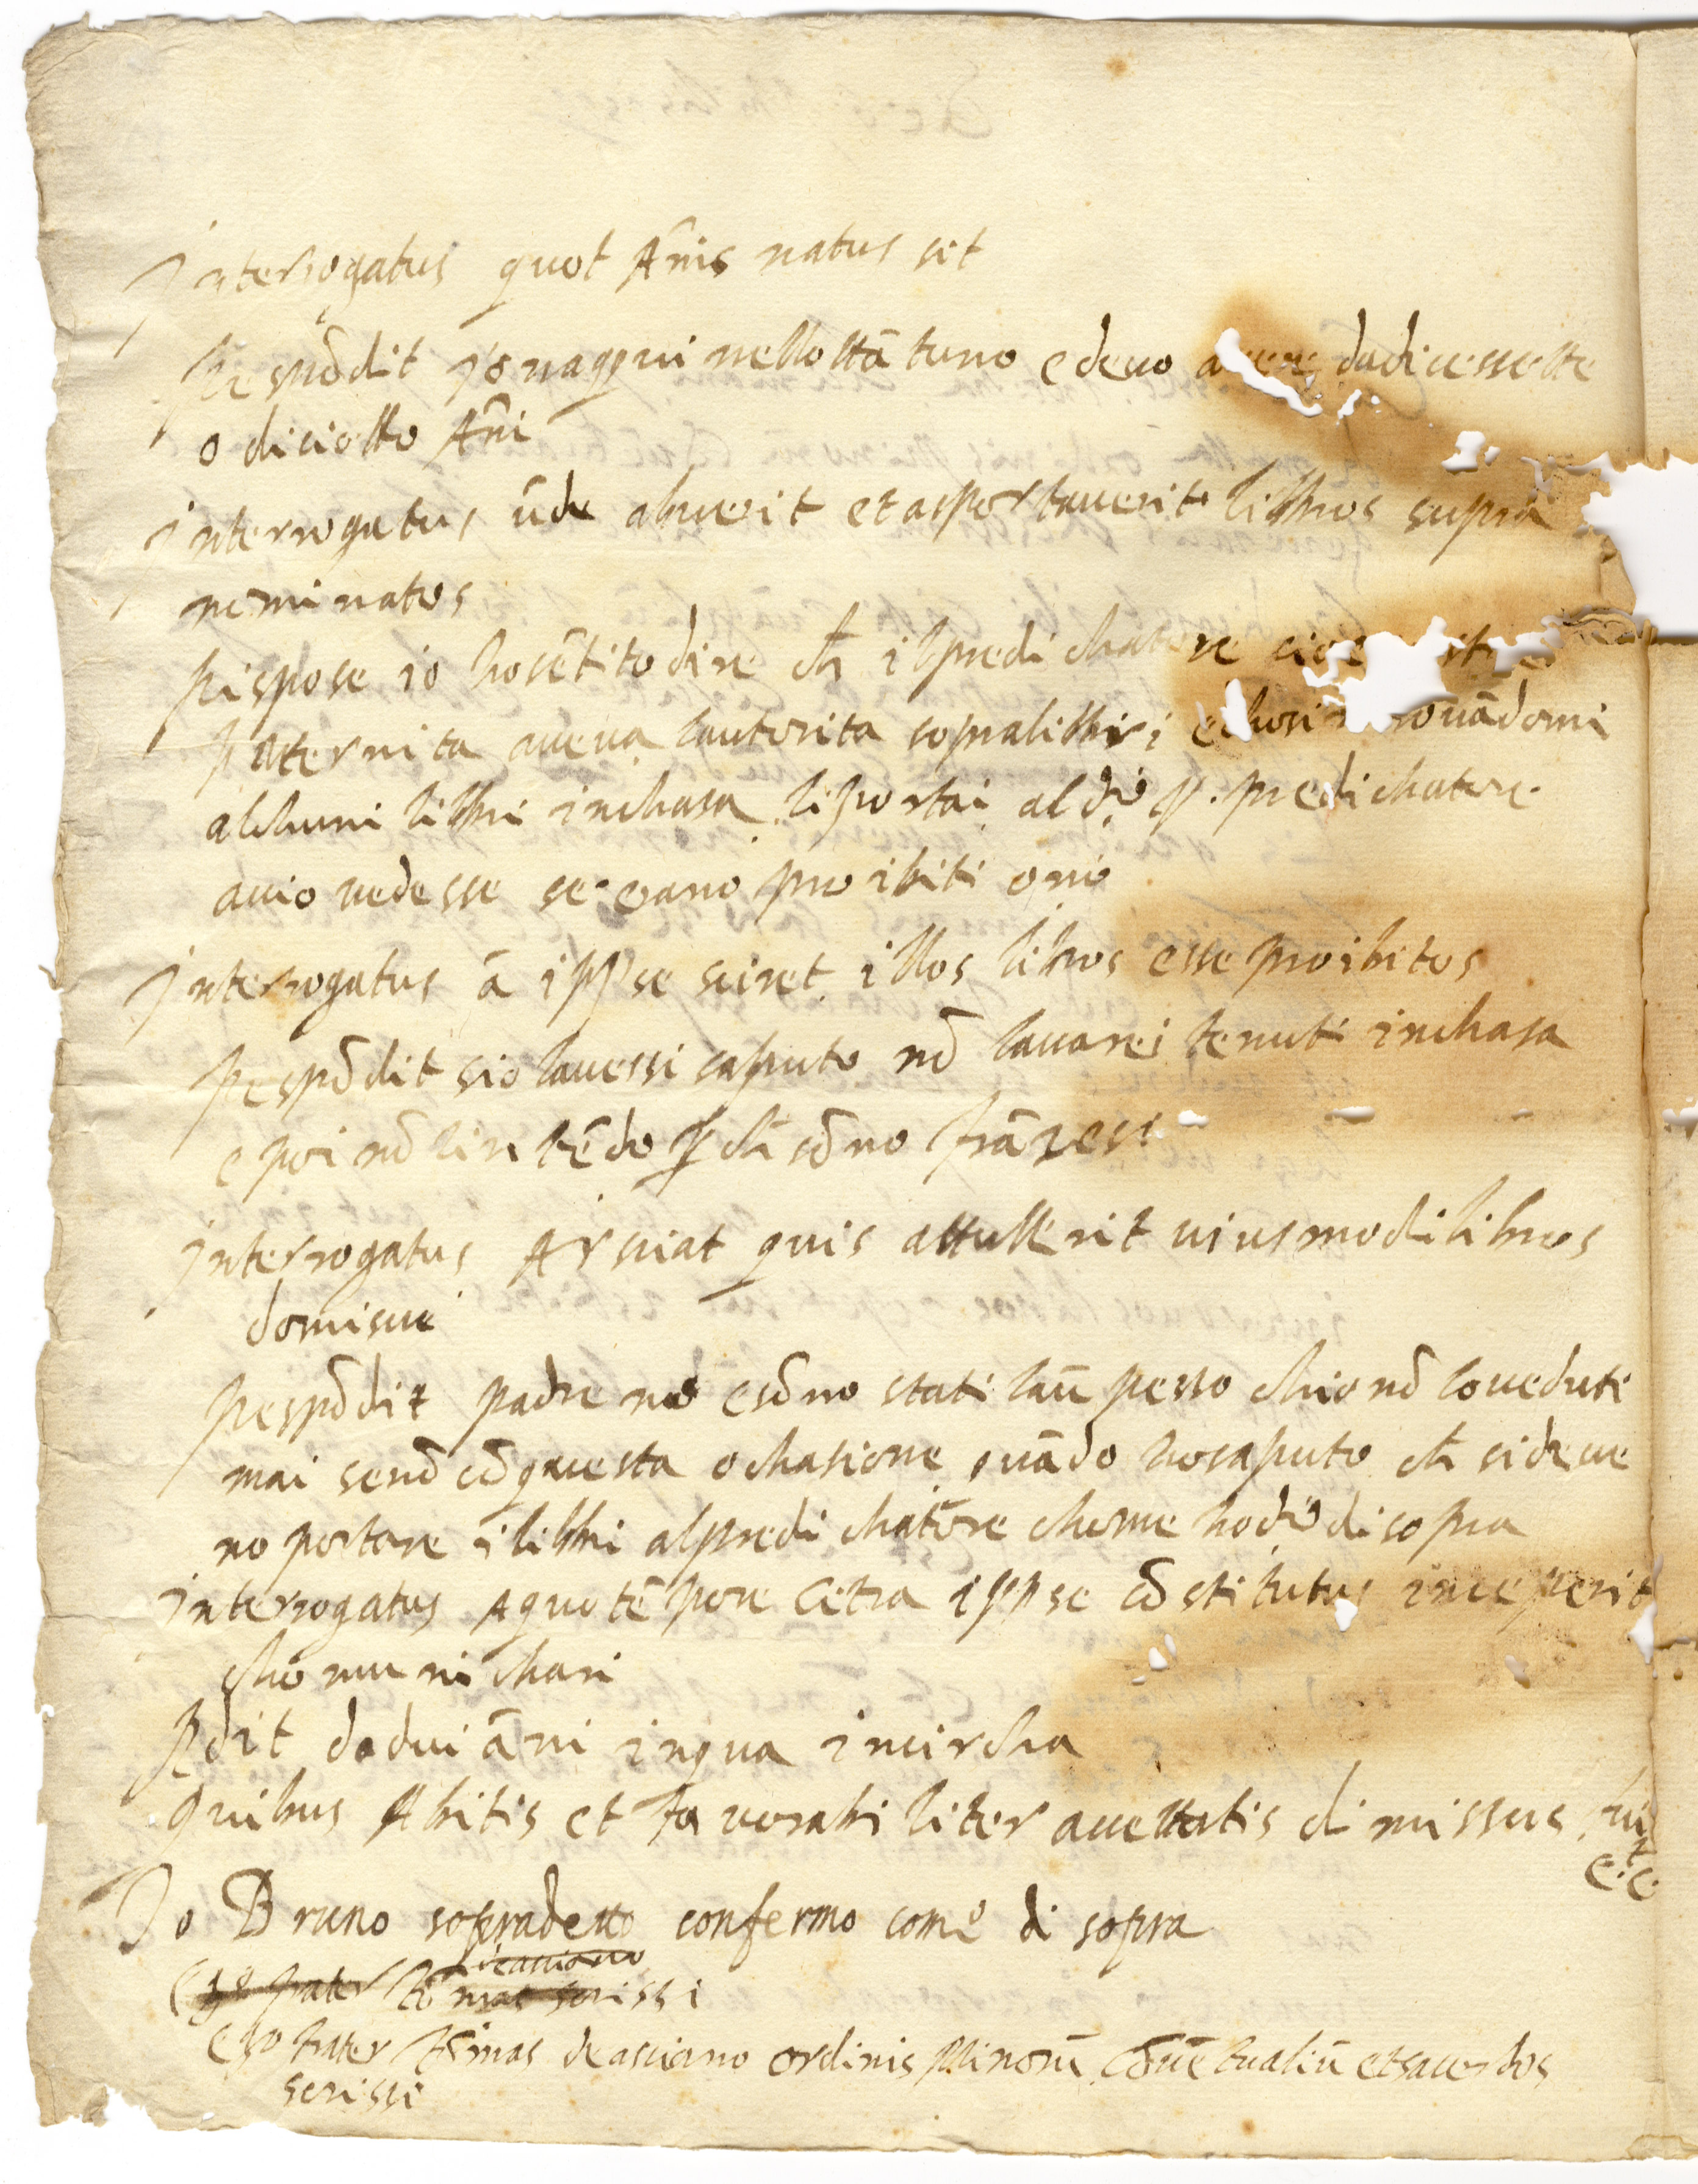 interrogatus quot An̄is natus sit
Respōdit io naqqui nellottātuno e devo avere dadicessette
o diciotto An̄i
interrogatus ūde abuerit et asportaverit libbros supra
nominatos
Rispose io hosētito dire ch̄ ilpredichatore cioe
paternita aveva lautorita sopralibbri echosi rovādomi
alchuni libbri inchasa liportai al d̄o p. predichatore
acio vedesse se erano proibiti ono
interrogatus ā ippse sciret illos libros esse proibitos
Respōdit sio lavessi saputo nō lavarei tenuti inchasa
e poi nō lintēdo p ch̄ sōno frāzesi
interrogatus An sciat quis attullerit uiusmodi libros
domi sue
Respōdit padre nō esōno stati laū pezzo chio nō loveduti
mai senō cōquesta ochasione quādo hosaputo ch̄ sideve
no portare i libbri alpredichatore chome hod̄o di sopra
interrogatus Aquotēpore citra ippse cōstitutus inceperit
chomunichari
Rdit dadui āni inqua incircha
quibus Abitis et favorabiliter accettatis dimissus fuit
e.c.
Io Bruno sopradetto confermo come di sopra
deasciano
Ego frater tōmas scrissi
ego frater tōmas deasciano ordinis Minorū cōvētualiū etsacerdos
scrissi